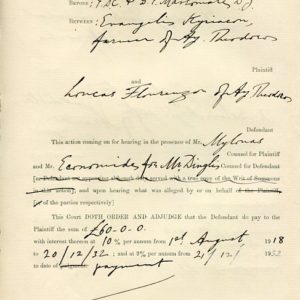 BEFORE: P.D.C. & D.J.
BETWEEN: Evangelis Kyriacou,
farmer of Ay. Theodoros
Plaintiff
and
Loucas Flourenzou of Ay. Theodoros
Defendant
This action coming on for hearing in the presence of Mr. Mylonas
Counsel for Plaintiff
and Mr. Economides for Mr Dingle Counsel for Defendant
[or Defendant not appearing although duly served with a true copy of the Writ of Summons
in this action], and upon hearing what was alleged by or on behalf of the Plaintiff,
[or of the parties respectively]
This Court DOTH ORDER AND ADJUDGE that the Defendant do pay to
the Plaintiff the sum of £60-0-0
with interest thereon at 10 % per annum from 1st August 1918
to 20/12/32; and at 9% per annum from 21/12/1932
to date of judgment. payment